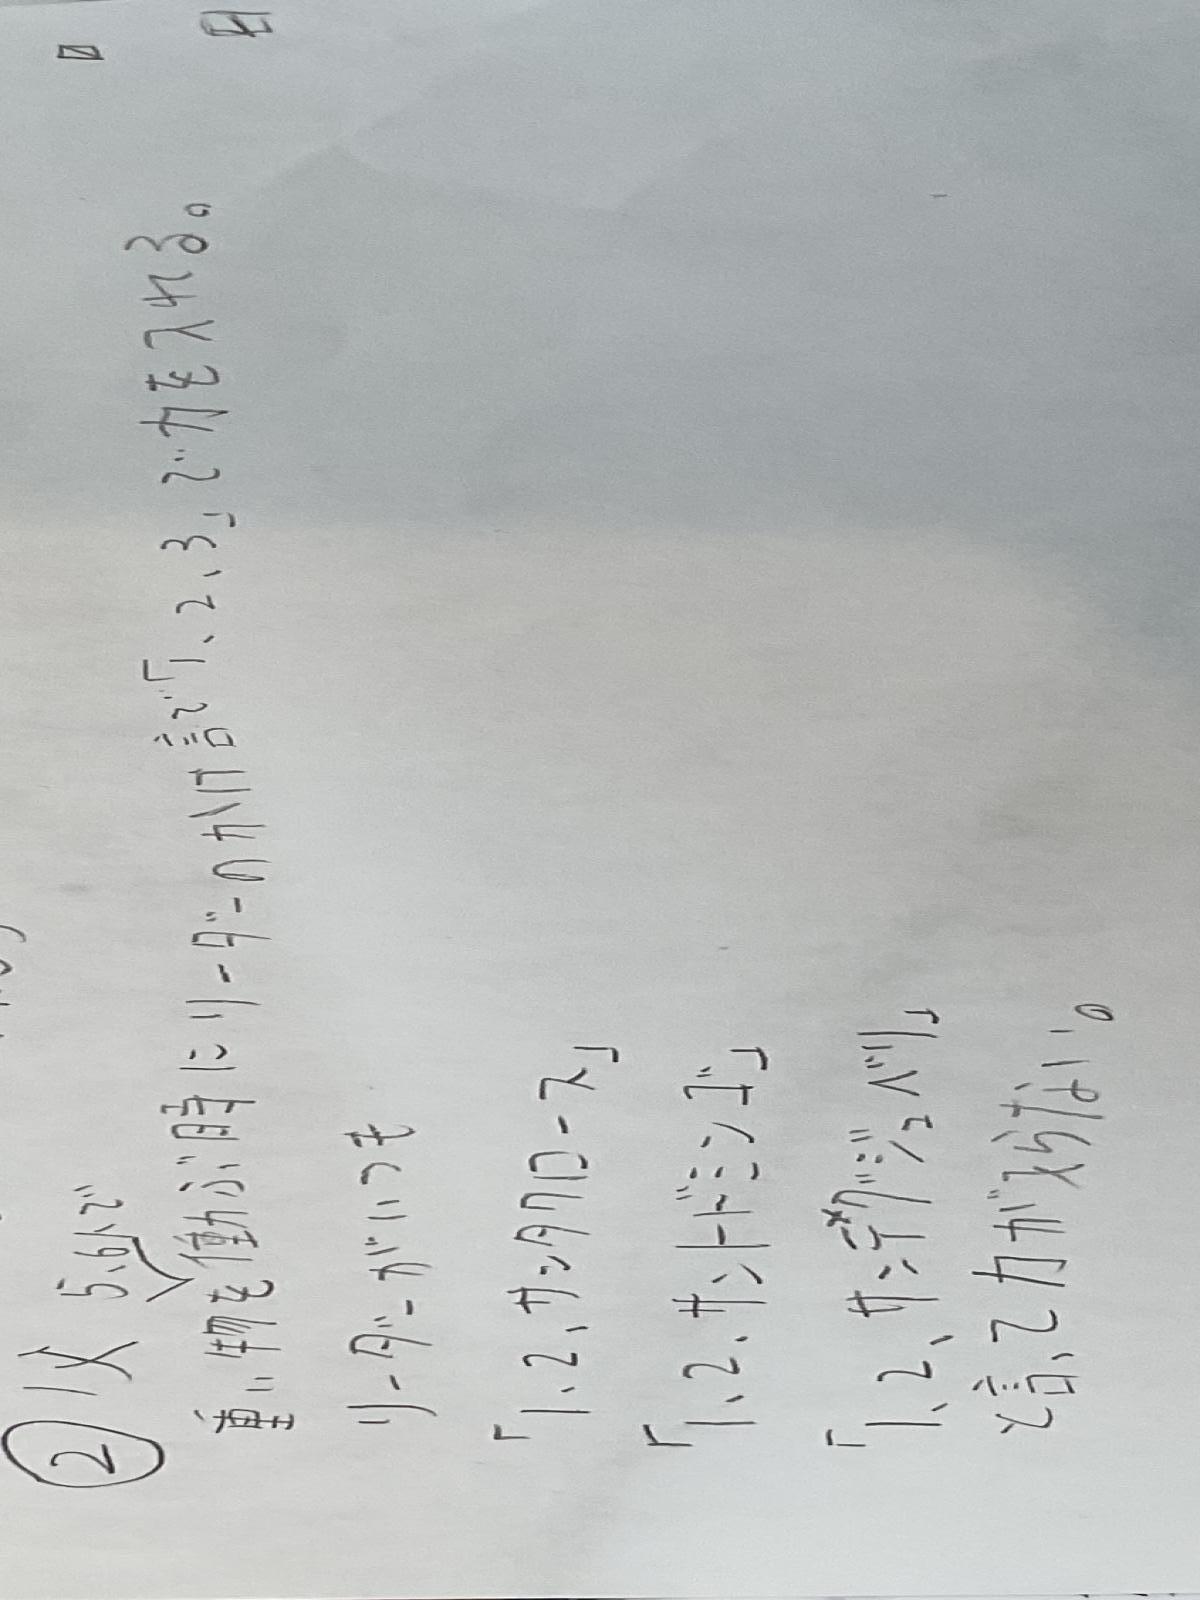 ②
5、6人で
重い物を ぶ時にリーダーのかけ声で「1、2、3」で力を入れる。
リーダーがいつも
「1、2、サンタクロース」
「1、2、サントドミンゴ」
「1、2、サンテグジュペリ」
と言って力が入らない。